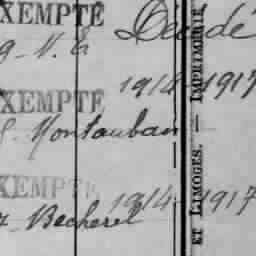 XEMPTÉ
9. N. E Decidé
XEMPTÉ 1914 1917
Montauban
XEMPTÉ 1914 1917
Becherel
ET LIMOGES. — IMPRIMERIE